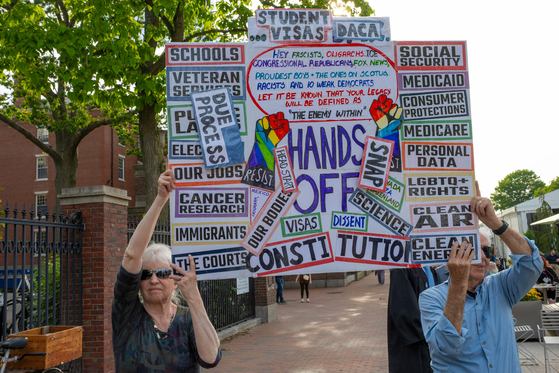 STUDENT
VISAS
DACA
SCHOOLS
VETERAN
ELEC
DUE
PROCESS
OUR JOBS
CANCER
RESEARCH
IMMIGRANTS
THE COURTS
HEY FASCISTS, OLIGARCHS, TCE
CONGRESSIONAL REPUBLICANS, FOX NEWS
PROUDEST BOYS + THE ONES ON SCOTUS
RACISTS AND 10 WEAK DEMOCRATS
LET IT BE KNOWN THAT YOUR LEGACY
WILL BE DEFINED AS
"THE ENEMY WITHIN"
HANDS
OFF
RESIST
HEAD START
OUR BODIES
SNAP
SCIENCE
VISAS
DISSENT
CONSTITUTION
SOCIAL
SECURITY
MEDICAID
CONSUMER
PROTECTIONS
MEDICARE
PERSONAL
DATA
LGBTQ
RIGHTS
CLEAN
AIR
CLEAN
ENERGY